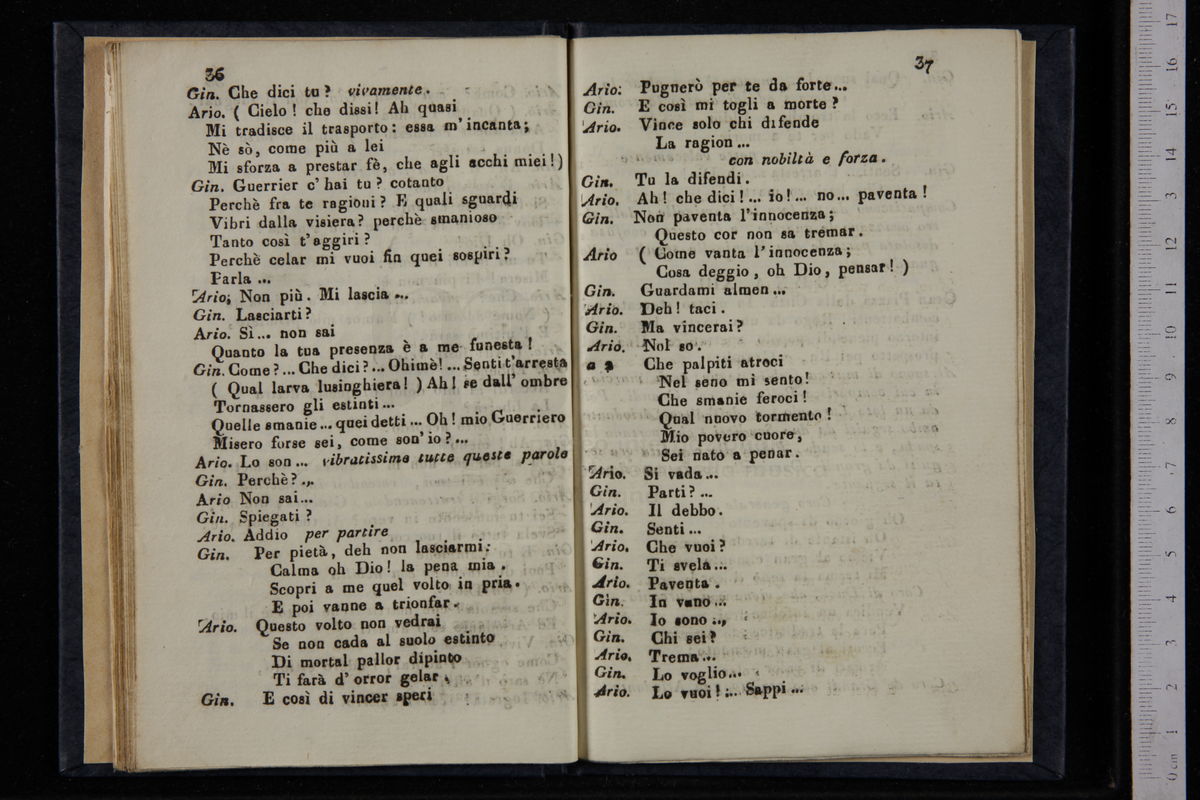 36
Gin. Che dici tu? vivamente.
Ario. ( Cielo! che dissi! Ah quasi
Mi tradisce il trasporto: essa m'incanta;
Nè sò, come più a lei
Mi sforza a prestar fè, che agli occhi miei!)
Gin. Guerrier c'hai tu? cotanto
Perchè fra te ragioni? E quali sguardi
Vibri dalla visiera? perchè smanioso
Tanto così t'aggiri?
Perchè celar mi vuoi fin quei sospiri?
Parla ...
Ario. Non più. Mi lascia ...
Gin. Lasciarti?
Ario. Sì... non sai
Quanto la tua presenza è a me funesta!
Gin. Come?... Che dici?... Ohimè!... Senti t'arresta
( Qual larva lusinghiera! ) Ah! se dall' ombre
Tornassero gli estinti...
Quelle smanie... quei detti... Oh! mio Guerriero
Misero forse sei, come son' io?...
Ario. Lo son... vibratissime tutte queste parole
Gin. Perchè?...
Ario Non sai...
Gin. Spiegati?
Ario. Addio per partire
Gin. Per pietà, deh non lasciarmi:
Calma oh Dio! la pena mia.
Scopri a me quel volto in pria.
E poi vanne a trionfar.
Ario. Questo volto non vedrai
Se non cada al suolo estinto
Di mortal pallor dipinto
Ti farà d' orror gelar.
Gin. E così di vincer speri
37
Ario: Pugnerò per te da forte...
Gin. E così mi togli a morte?
Ario. Vince solo chi difende
La ragion...
con nobiltà e forza.
Gin. Tu la difendi.
Ario. Ah! che dici!... io!... no... paventa!
Gin. Non paventa l'innocenza;
Questo cor non sa tremar.
Ario ( Come vanta l'innocenza;
Cosa deggio, oh Dio, pensar! )
Gin. Guardami almen...
Ario. Deh! taci.
Gin. Ma vincerai?
Ario. Nol so.
a 2 Che palpiti atroci
Nel seno mi sento!
Che smanie feroci!
Qual nuovo tormento!
Mio povero cuore,
Sei nato a penar.
Ario. Si vada...
Gin. Parti?...
Ario. Il debbo.
Gin. Senti...
Ario. Che vuoi?
Gin. Ti svela...
Ario. Paventa.
Gin. In vano...
Ario. Io sono...
Gin. Chi sei?
Ario. Trema...
Gin. Lo voglio...
Ario. Lo vuoi!... Sappi...
0 cm 1 2 3 4 5 6 7 8 9 10 11 12 13 14 15 16 17